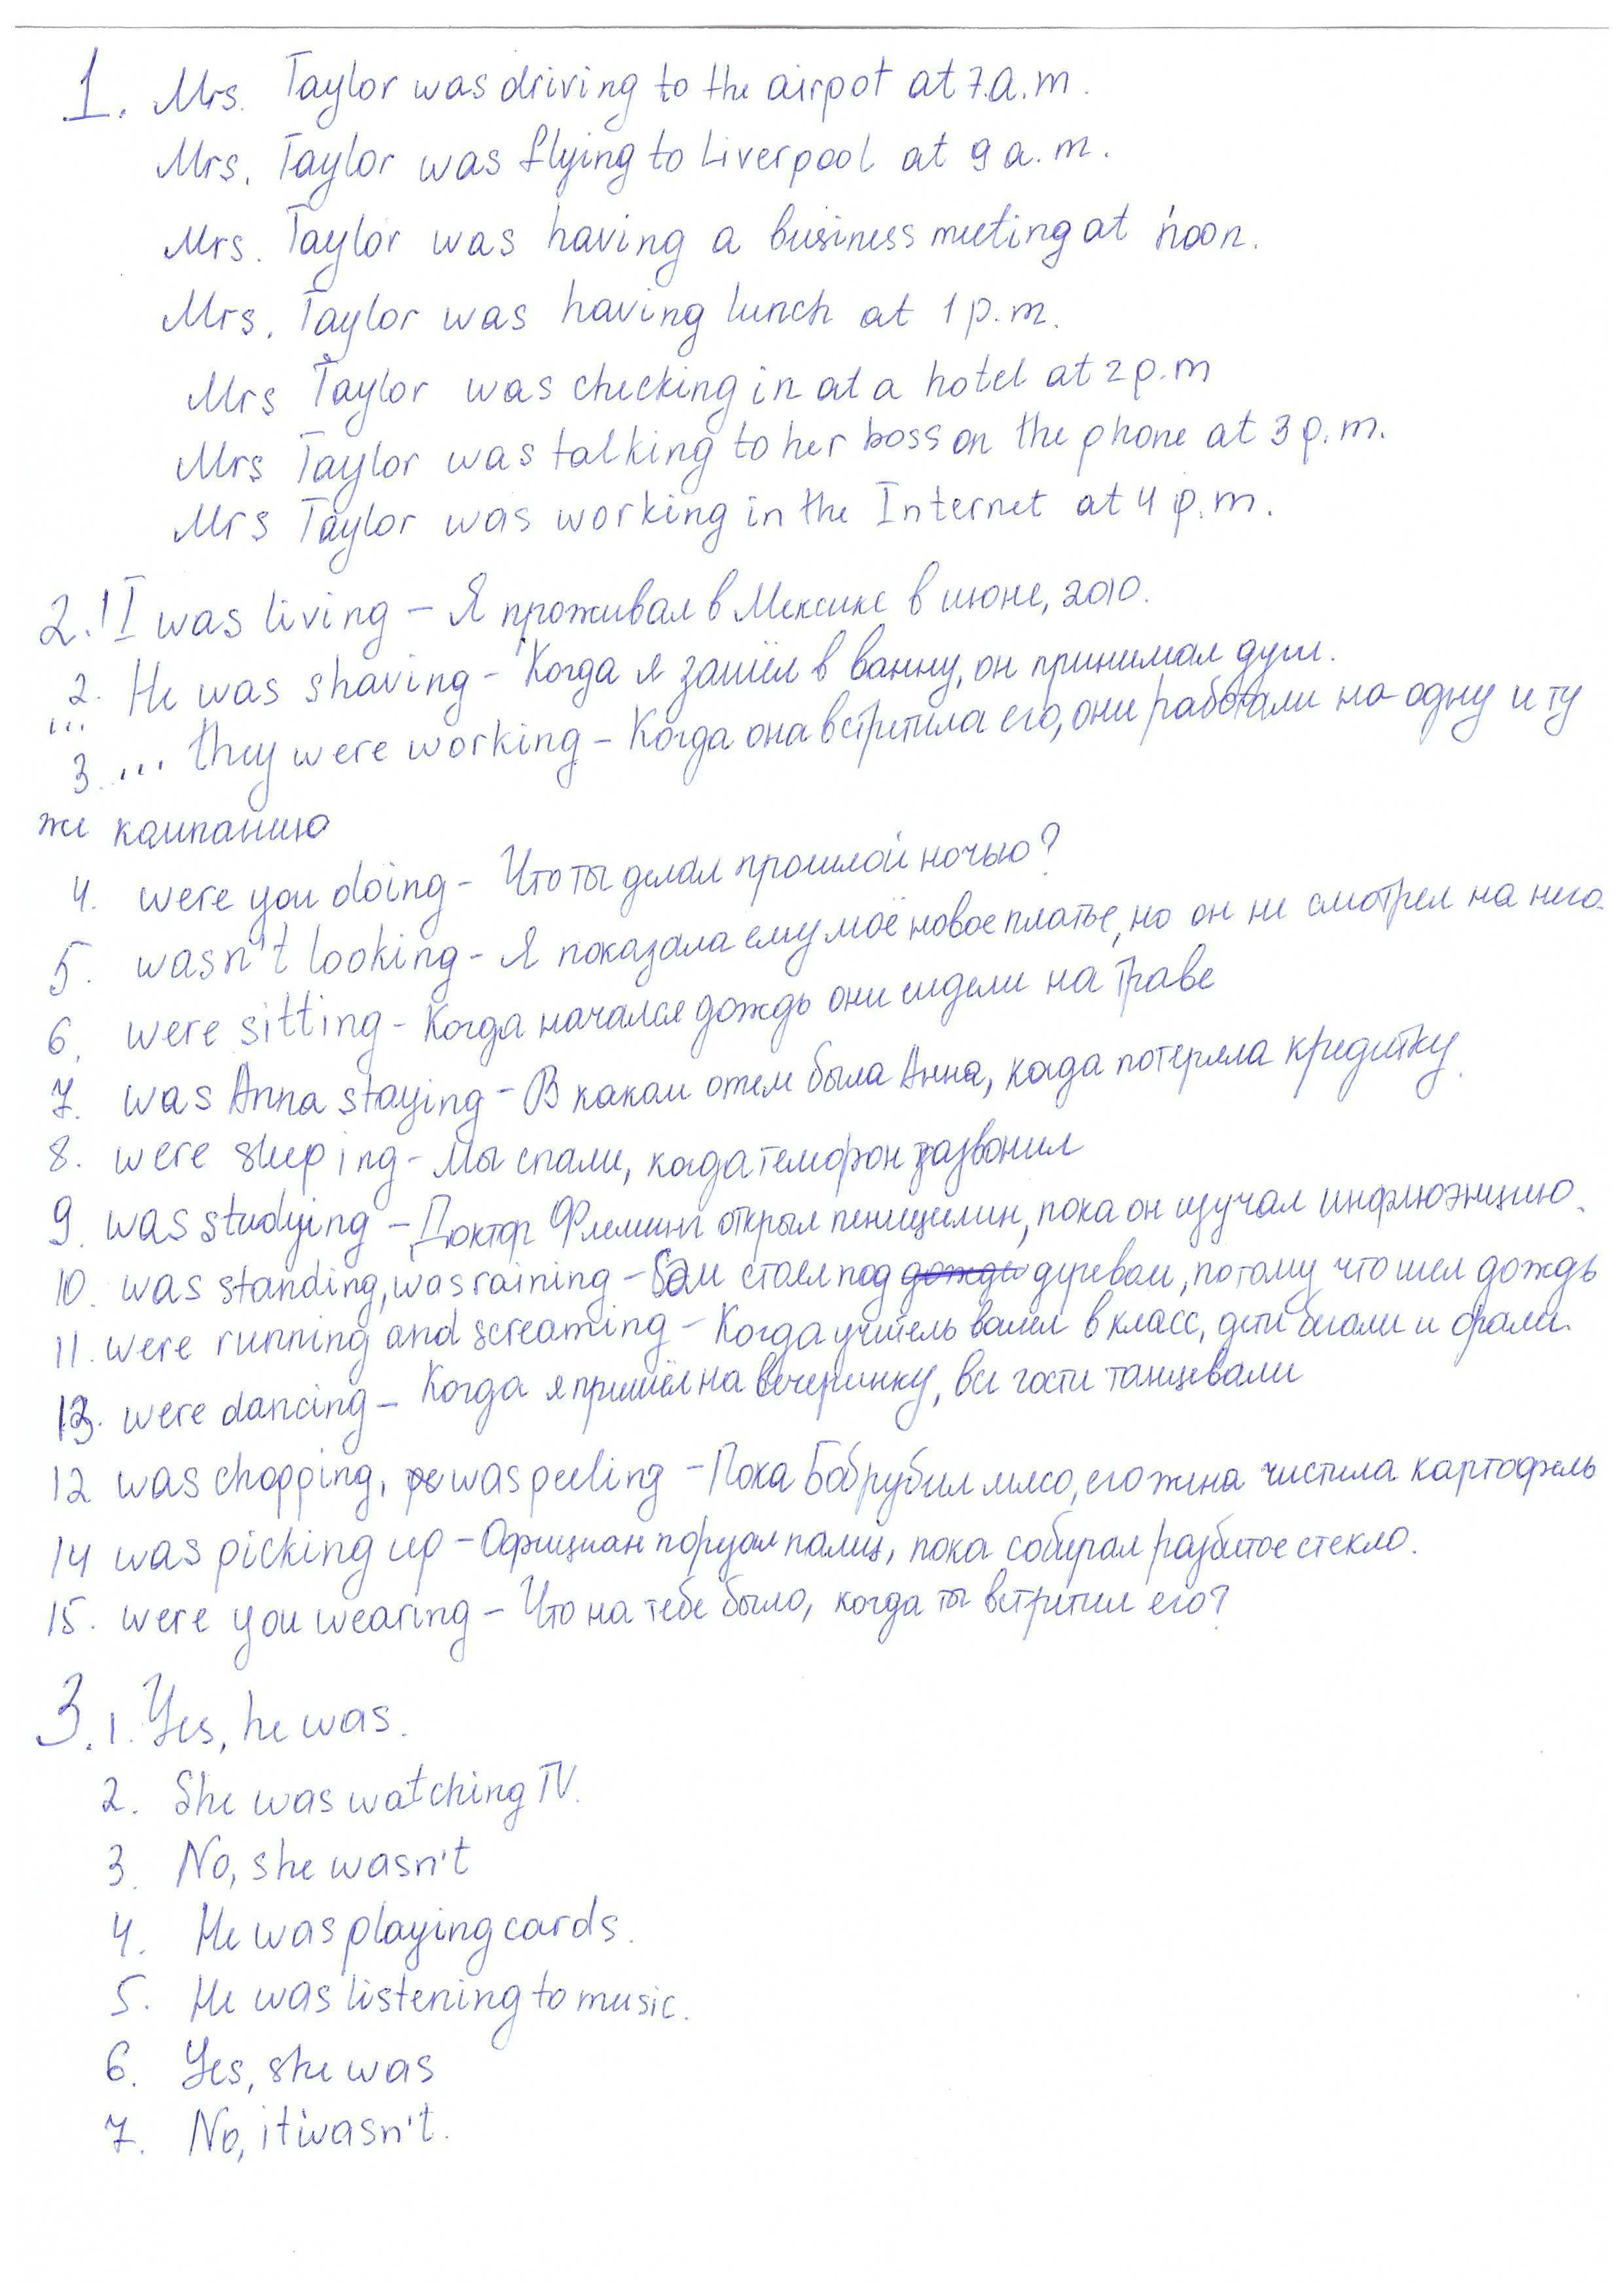 1. Mrs. Taylor was driving to the airpot at 7.a.m.
Mrs. Taylor was flying to Liverpool at 9 a.m.
Mrs. Taylor was having a business meeting at noon.
Mrs. Taylor was having lunch at 1 p.m.
Mrs Taylor was checking in at a hotel at 2 p.m
Mrs Taylor was talking to her boss on the phone at 3 p.m.
Mrs Taylor was working in the Internet at 4 p.m.
2. 1 I was living – Я проживал в Мексике в июне, 2010.
2. He was shaving – Когда я зашёл в ванну, он принимал душ.
...
3. ... they were working – Когда она встретила его, они работали на одну и ту
же компанию
4. were you doing – Что ты делал прошлой ночью?
5. wasn't looking – Я показала ему моё новое платье, но он не смотрел на него.
6. were sitting – Когда начался дождь они сидели на траве
7. was Anna staying – В каком отеле была Анна, когда потеряла кредитку
8. were sleeping – Мы спали, когда телефон зазвонил
9. was studying – Доктор Флеминг открыл пеницилин, пока он изучал инфлюэнцию.
10. was standing, was raining – Сэм стоял под дождь деревом, потому что шел дождь
11. were running and screaming – Когда учитель вошел в класс, дети бегали и орали.
13. were dancing – Когда я пришёл на вечеринку, все гости танцевали
12 was chopping, was peeling – Пока Боб рубил мясо, его жена чистила картофель
14 was picking up – Официан порезал палец, пока собирал разбитое стекло.
15. were you wearing – Что на тебе было, когда ты встретил его?
3. 1. Yes, he was.
2. She was watching TV.
3. No, she wasn't
4. He was playing cards.
5. He was listening to music.
6. Yes, she was
7. No, it wasn't.